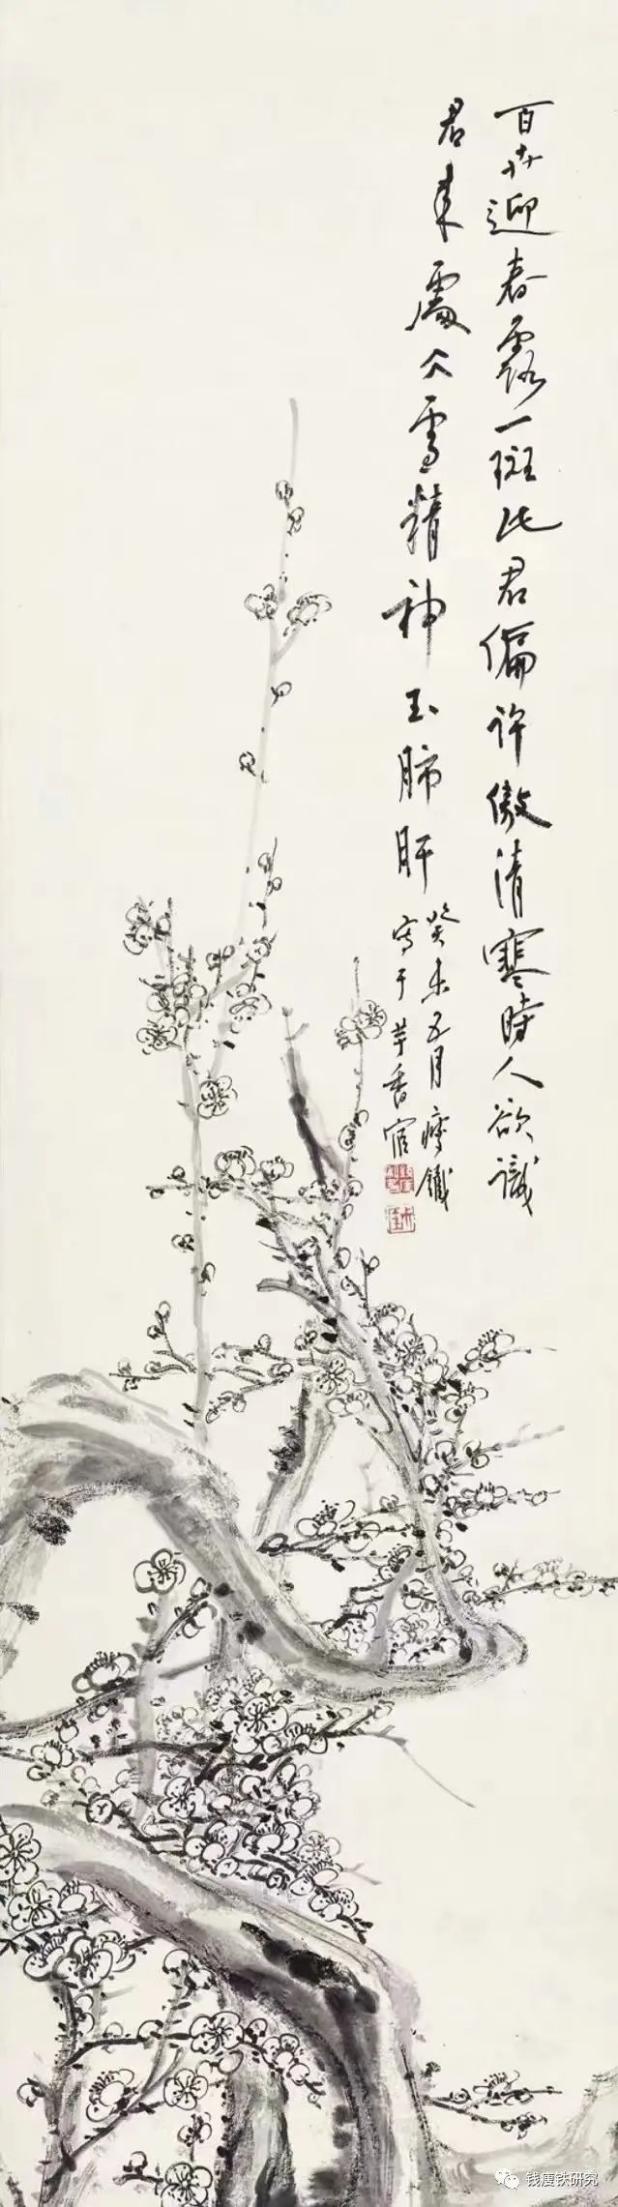 百卉迎春露一斑比君偏許傲清寒時人欲識
君來處仌雪精神玉肺肝
癸未五月瘦鐵
寫于芋香宧
钱瘦铁研究